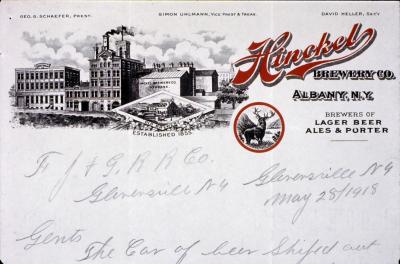 GEO. G. SCHAEFER, PREST. SIMON UHLMANN, VICE PREST & TREAS. DAVID HELLER, SEC'Y
Hinckel
BREWERY CO.
ALBANY, N.Y.
BREWERS OF
LAGER BEER
ALES & PORTER
ESTABLISHED 1855.
F J & G. R R Co.
Gloversville N Y Gloversville N Y
May 28/1918
Gents
The Car of beer Shiped out